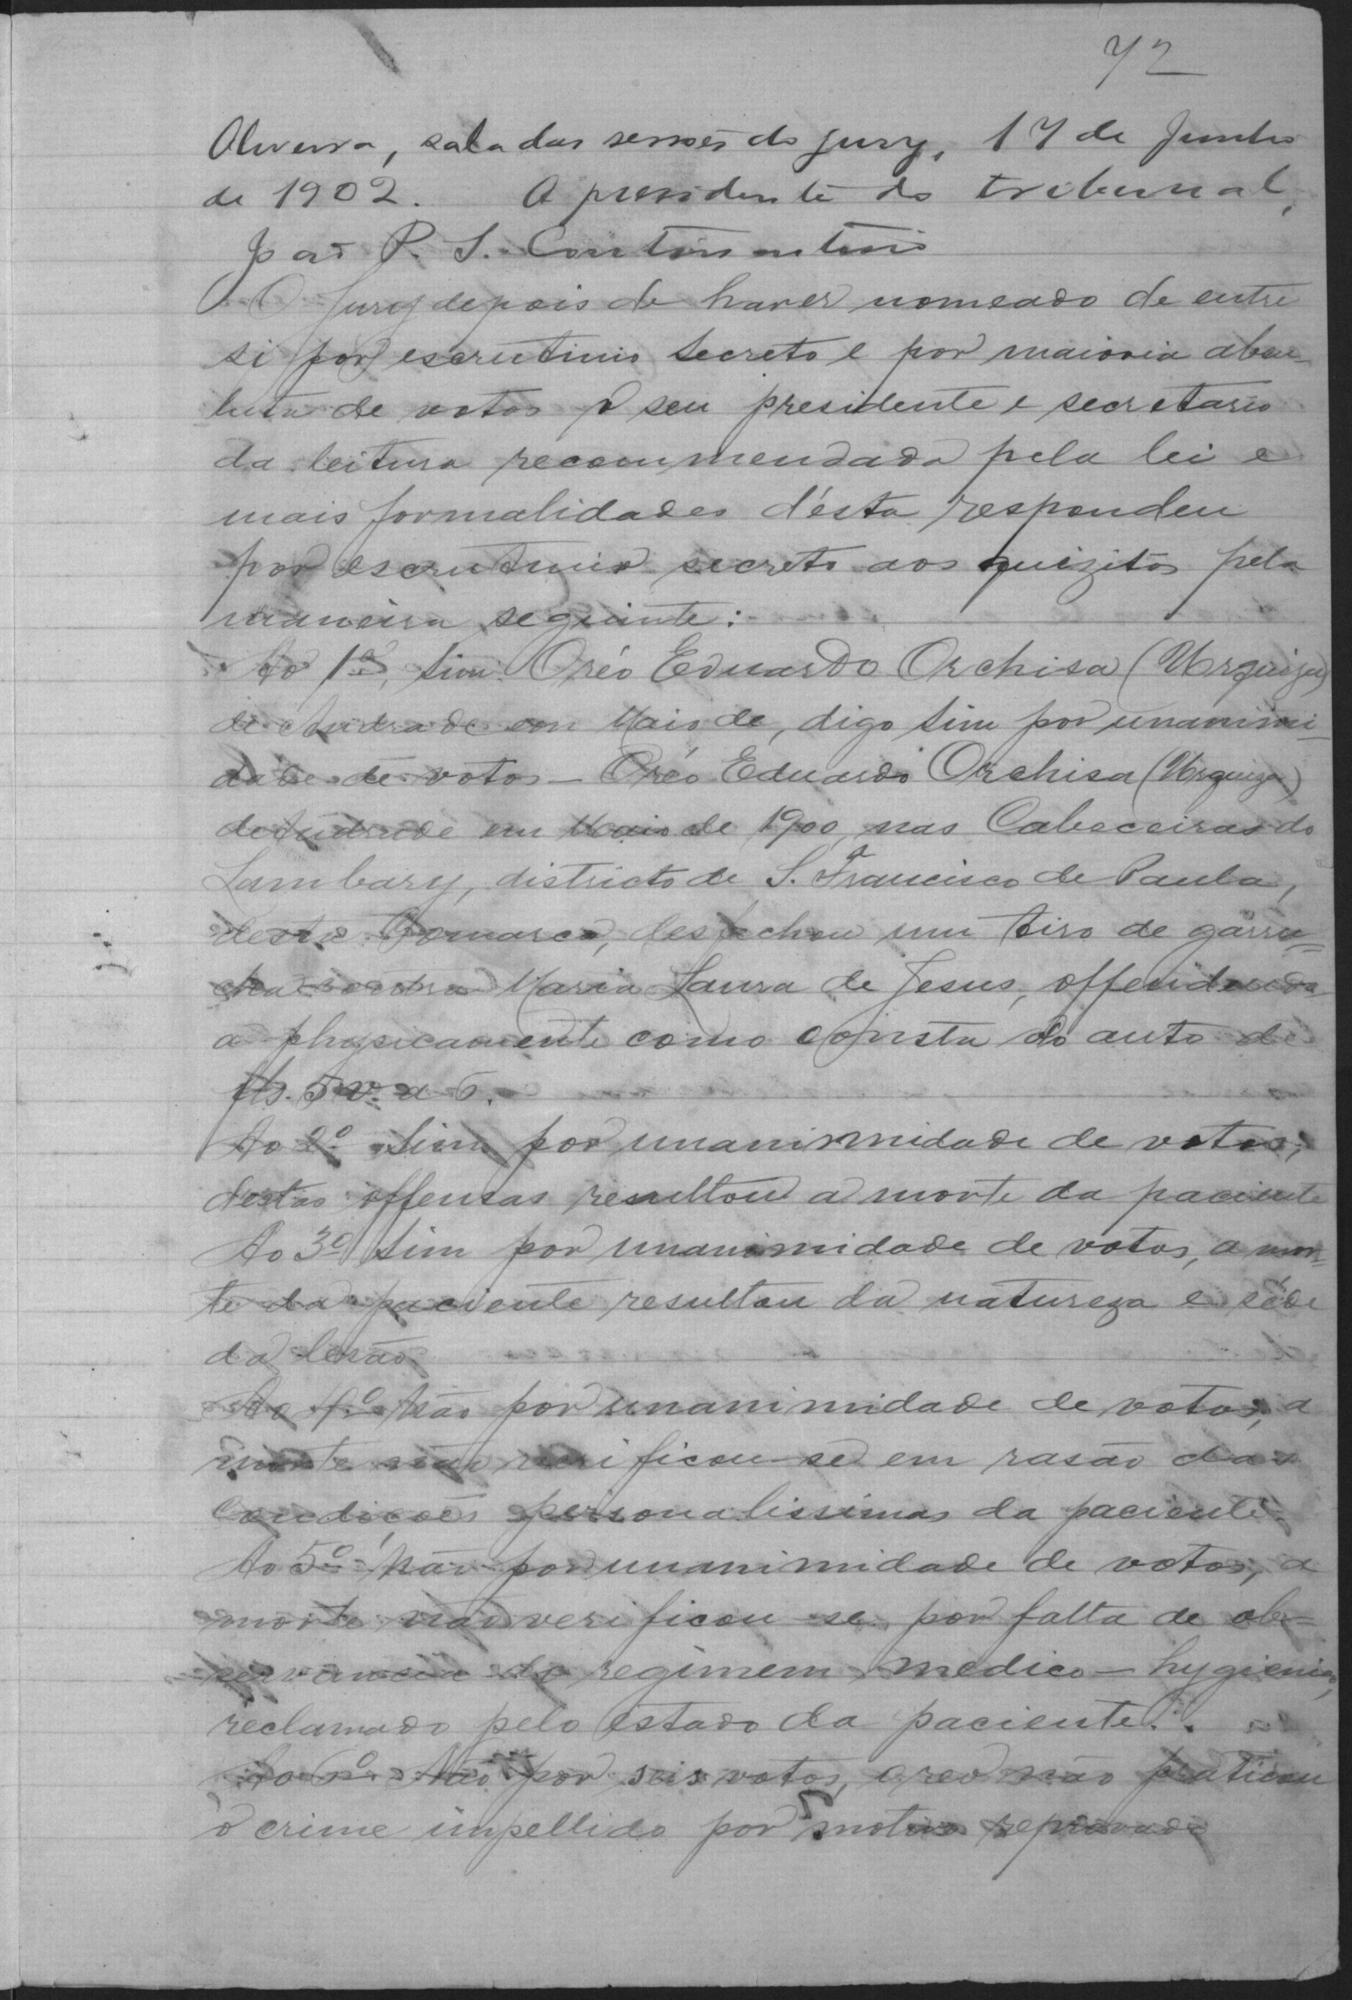 72
Oliveira, sala das sessões do jury, 17 de Junho
de 1902. O presidente do tribunal,
P. S.
O Jury depois de haver nomeado de entre
si por escrutinio secreto e por maioria abso-
luta de votos o seu presidente e secretario
da leitura recommendada pela lei e
mais formalidades d'ésta respondeu
por escrutinio secreto aos quizitos pela
maneira seguinte:
Ao 1º, sim. O réo Eduardo Orchisa (Urquiza)
de Andrade em Maio de, digo sim por unanimi-
dade de votos - O réo Eduardo Orchisa (Urquiza)
de Andrade em Maio de 1900, nas Cabeceiras do
Lambary, districto de S. Francisco de Paula,
desta Comarca, desfechou um tiro de garru-
cha contra Maria Laura de Jesus, offendendo-
a physicamente como consta do auto de
fls. 5 v. a 6.
Ao 2º sim por unanimidade de votos;
destas offensas resultou a morte da paciente
Ao 3º sim por unanimidade de votos, a mor-
te da paciente resultou da natureza e séde
da lesão.
Ao 4º Não por unanimidade de votos, a
morte não verificou-se em rasão das
condições personalissimas da paciente.
Ao 5º Não por unanimidade de votos, a
morte não verificou-se por falta de ob-
servancia do regimem medico-hygienico,
reclamado pelo estado da paciente.
Ao 6º Não por seis votos, o reo não praticou
o crime impellido por motivo reprovado